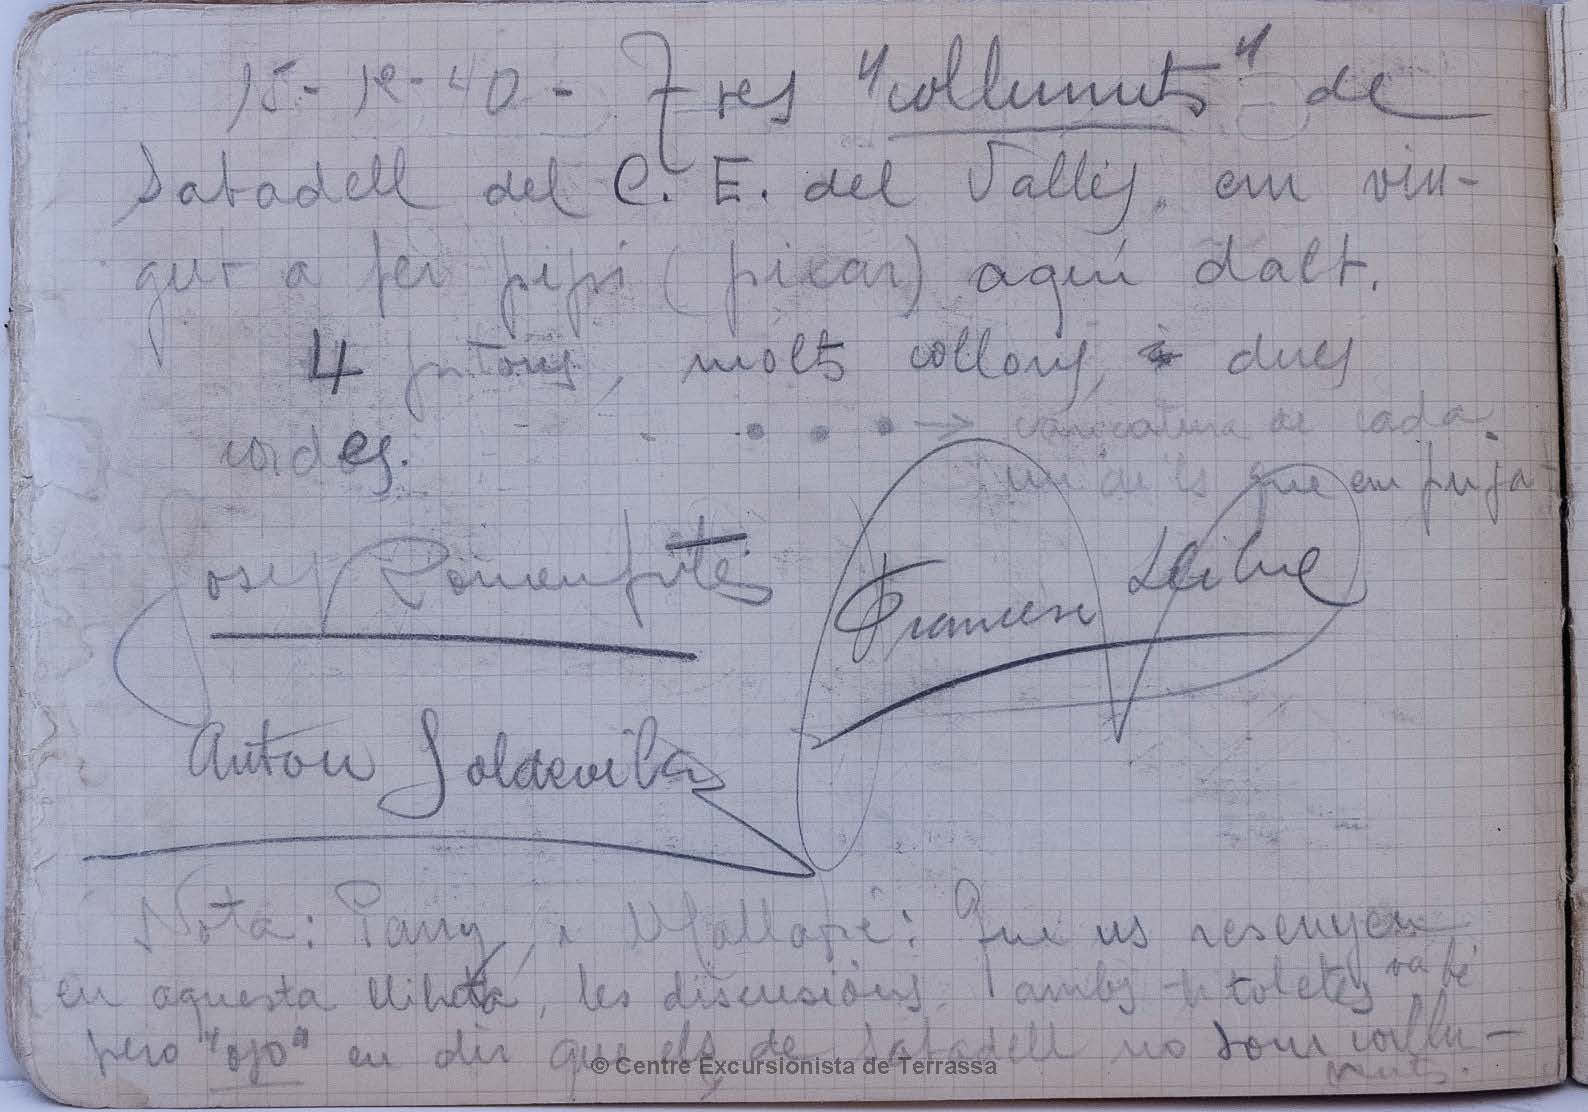 15-12-40 - Tres "collunuts" de
Sabadell del C. E. del Vallés, em vin-
gut a fer pipi (picar) aquí dalt.
4 pitons, molts collons, i dues
cordes. . . . → caricatura de cada
un de ls que em puja-
Josep
Francesc
Anton Soldevila
Nota: i Ullastre: Que us
en aquesta llibreta, les discusions
pero "ojo" en dir que els de Sabadell no son collu-
nuts.
© Centre Excursionista de Terrassa